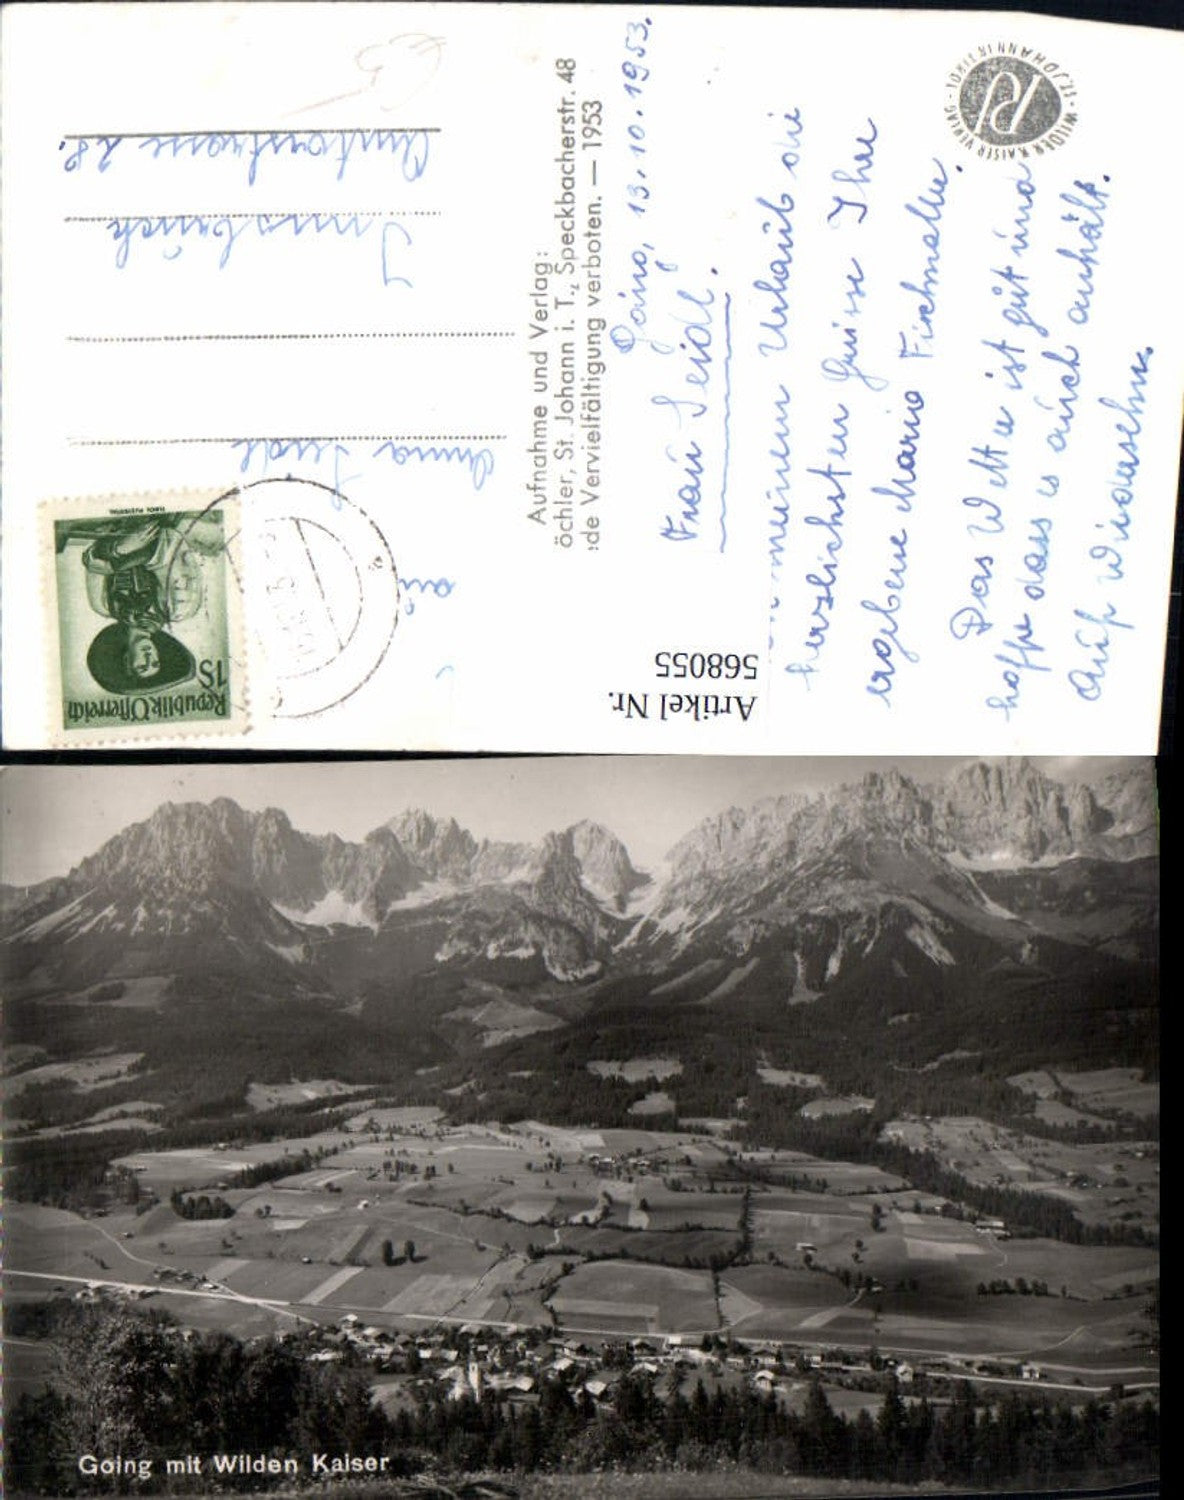 Going, 13.10.1953.
Frau Seidl.
meinem Urlaub die
herzlichsten Grüsse Ihre
ergebene Maria Fischnaller.
Das Wetter ist gut und
hoffe dass es auch anhält.
Auf Wiedersehn.
WILDER KAISER VERLAG · ST. JOHANN IN TIROL ·
Aufnahme und Verlag:
öchler, St. Johann i. T., Speckbacherstr. 48
de Vervielfältigung verboten. — 1953
Artikel Nr.
568055
Republik Österreich
1S
an
Anna Seidl
Innsbruck
28.
Going mit Wilden Kaiser